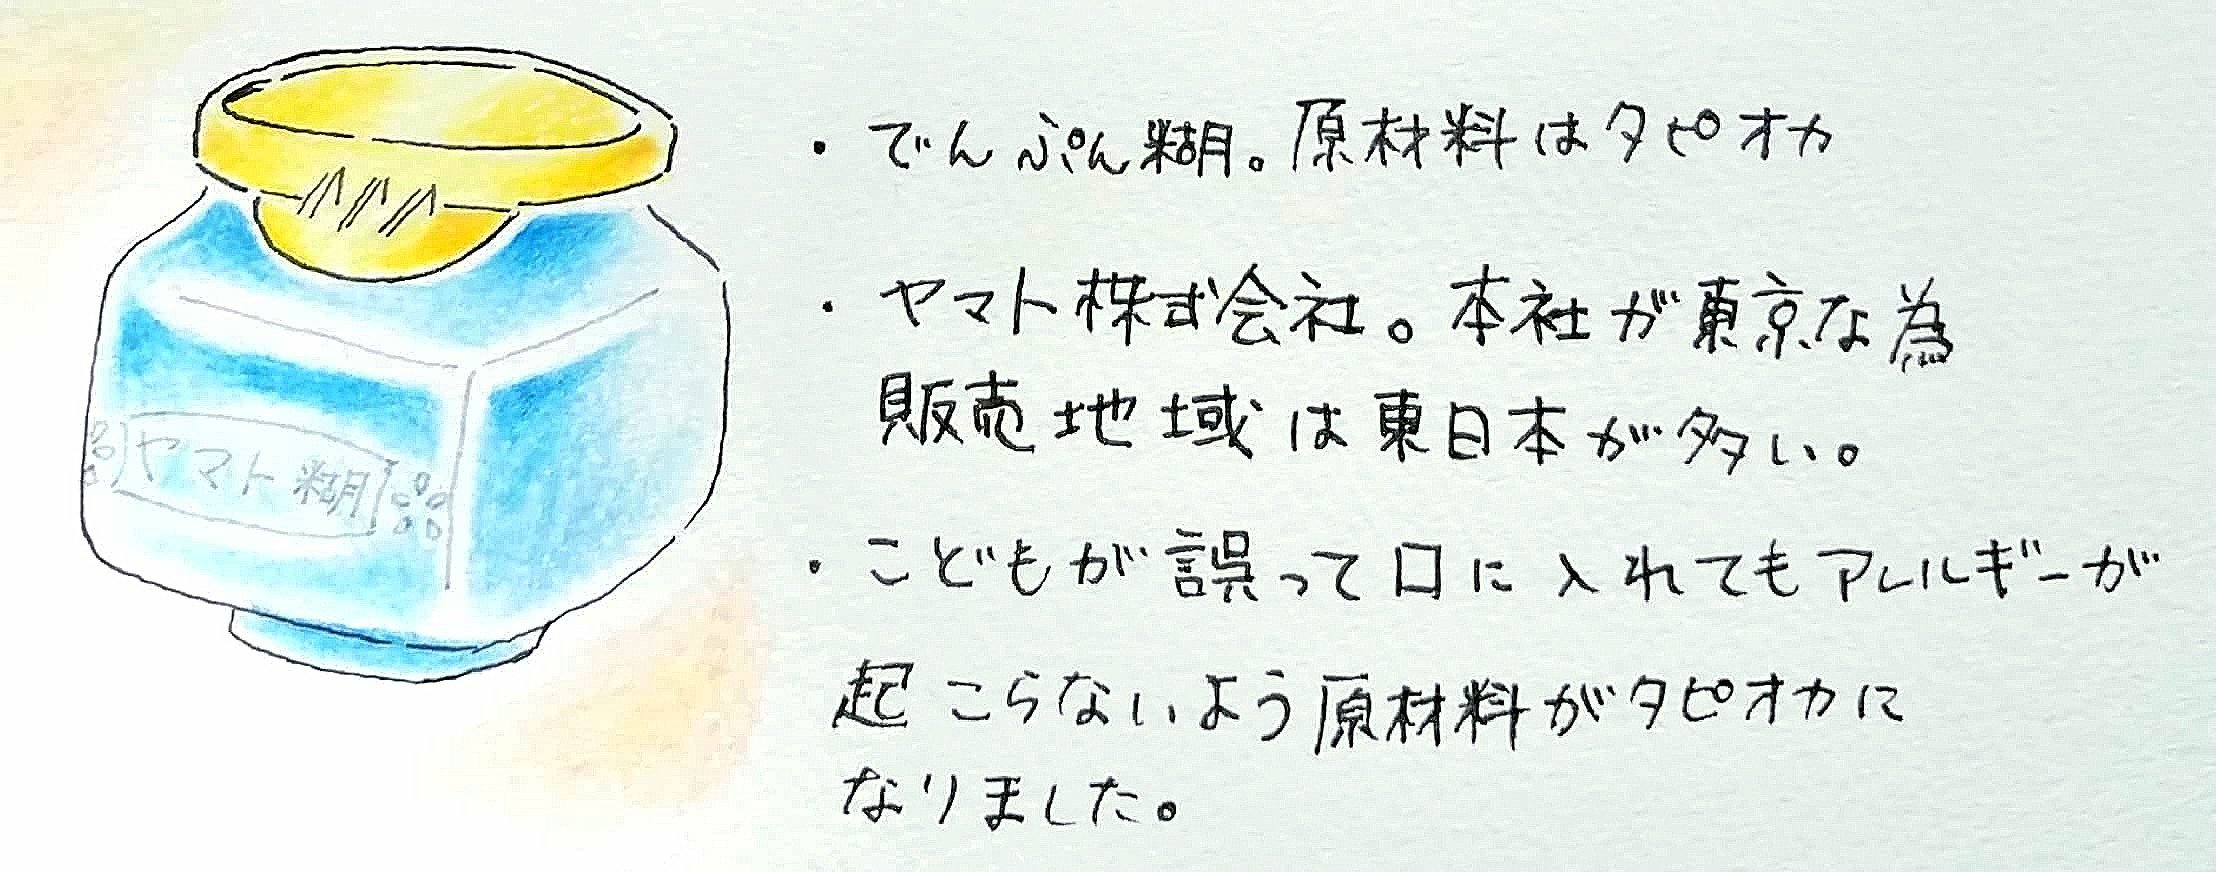 ・でんぷん糊。原材料はタピオカ
・ヤマト株式会社。本社が東京な為
販売地域は東日本が多い。
・こどもが誤って口に入れてもアレルギーが
起こらないよう原材料がタピオカに
なりました。
ヤマト糊